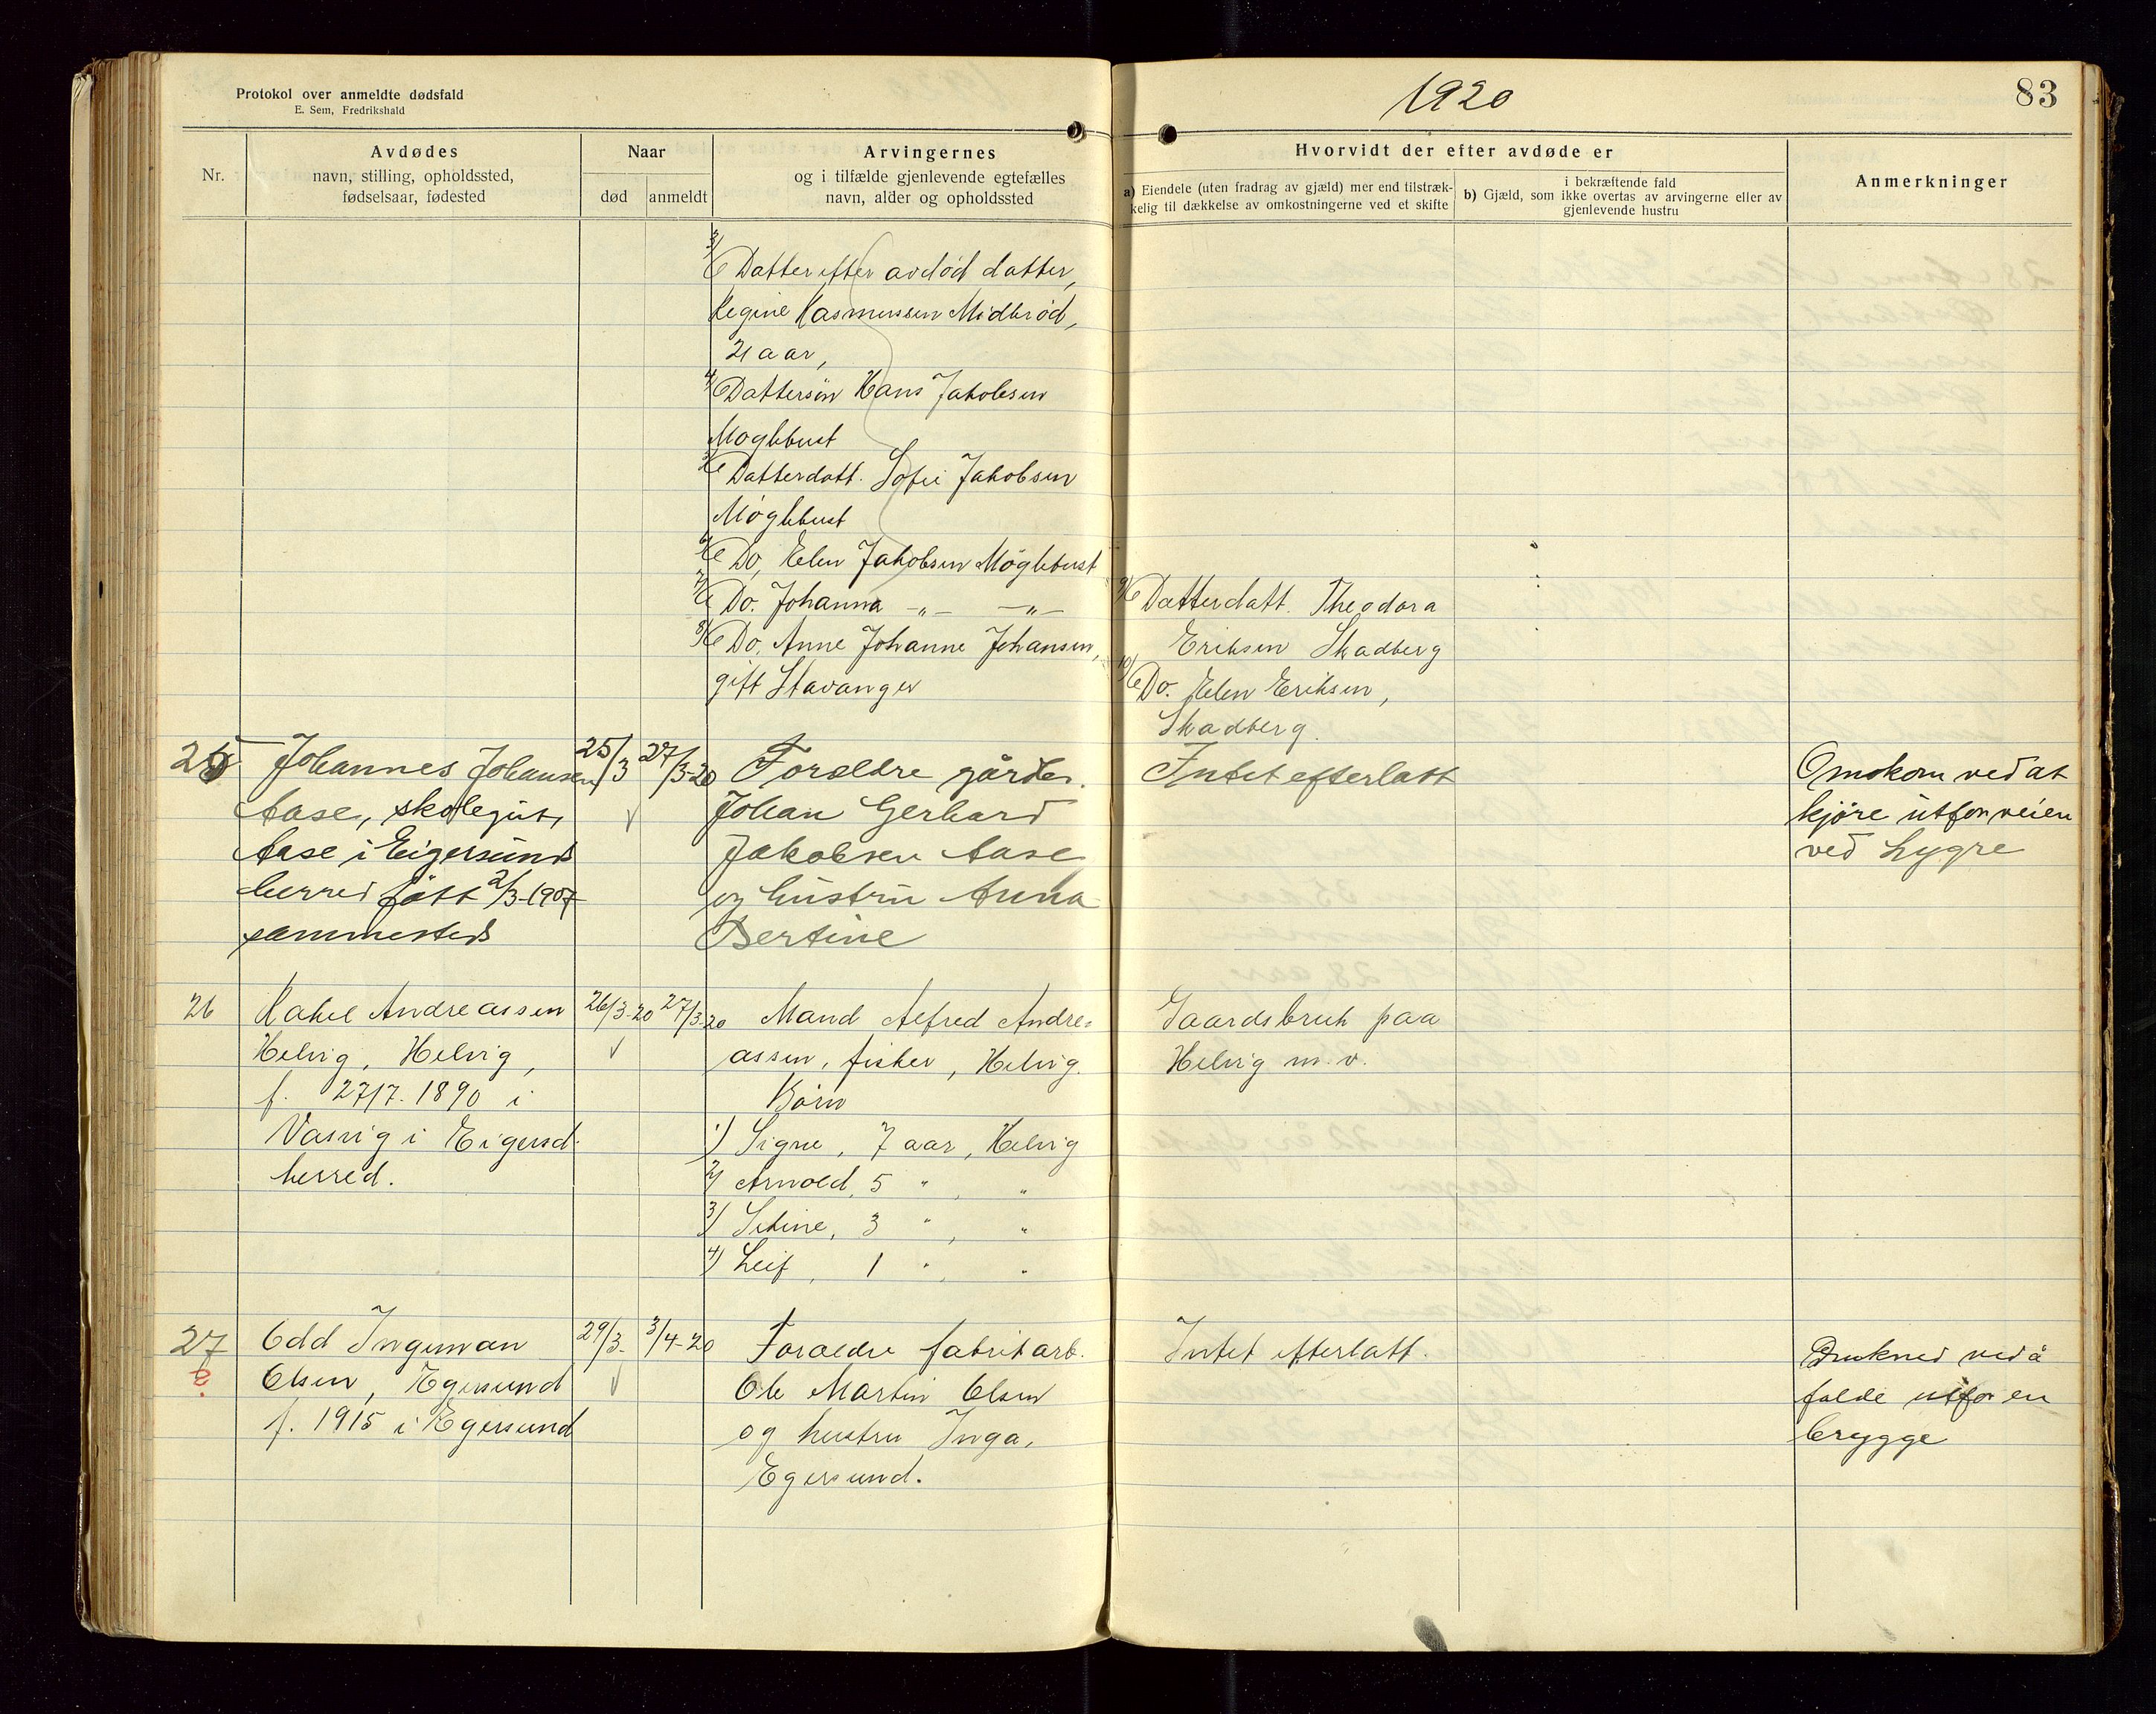 Protokol over anmeldte dødsfald
E. Sem, Fredrikshald
1920
83
Nr.
Avdødes
navn, stilling, opholdssted,
fødselsaar, fødested
Naar
død
anmeldt
Arvingernes
og i tilfælde gjenlevende egtefælles
navn, alder og opholdssted
Hvorvidt der efter avdøde er
a) Eiendele (uten fradrag av gjæld) mer end tilstræk-
kelig til dækkelse av omkostningerne ved et skifte
i bekræftende fald
b) Gjæld, som ikke overtas av arvingerne eller av
gjenlevende hustru
Anmerkninger
3/ Datter efter avdød datter,
Regine Rasmussen Midbrød,
21 aar,
4/ Dattersön Hans Jakobsen
Møglebust
5/ Datterdatt. Sofie Jakobsen
Møglebust
6/ Do, Elen Jakobsen Møglebust
7/ Do. Johanna -„- -„-
8/ Do. Anne Johanne Johansen,
gift Stavanger
9/ Datterdatt. Theodora
Eriksen Skadberg
10/ Do. Elen Eriksen,
Skadberg.
25
Johannes Johansen
Aase, skolegut,
Aase i Eigersunds
herred født 2/3-1907
sammesteds
25/3
27/3-20
Forældre gårdbr.
Johan Gerhard
Jakobsen Aase
og hustru Anna
Bertine
Intet efterlatt
Omkom ved at
kjøre utfor veien
ved Lygre
26
Rakel Andreassen
Helvig, Helvig,
f. 27/7. 1890 i
Vasvig i Eigersd.
herred.
26/3-20
27/3-20
Mand Alfred Andre-
assen, fisker, Helvig.
Børn
1) Signe, 7 aar, Helvig
2) Arnold, 5 " , "
3) Sitine, 3 " , "
4) Leif, 1 " , "
Gaardsbruk paa
Helvig m. v.
27
?
Odd Ingeman
Olsen, Egersund
f. 1915 i Egersund
29/3-
3/4-20
Forældre fabrikarb.
Ole Martin Olsen
og hustru Inga,
Egersund.
Intet efterlatt.
Druknet ved å
falde utfor en
brygge